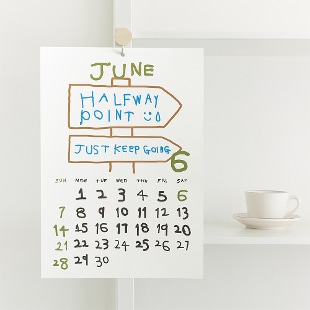 JUNE
HALFWAY
POINT :)
JUST KEEP GOING
6
SUN MON TUE WED THU FRI SAT
1 2 3 4 5 6
7 8 9 10 11 12 13
14 15 16 17 18 19 20
21 22 23 24 25 26 27
28 29 30